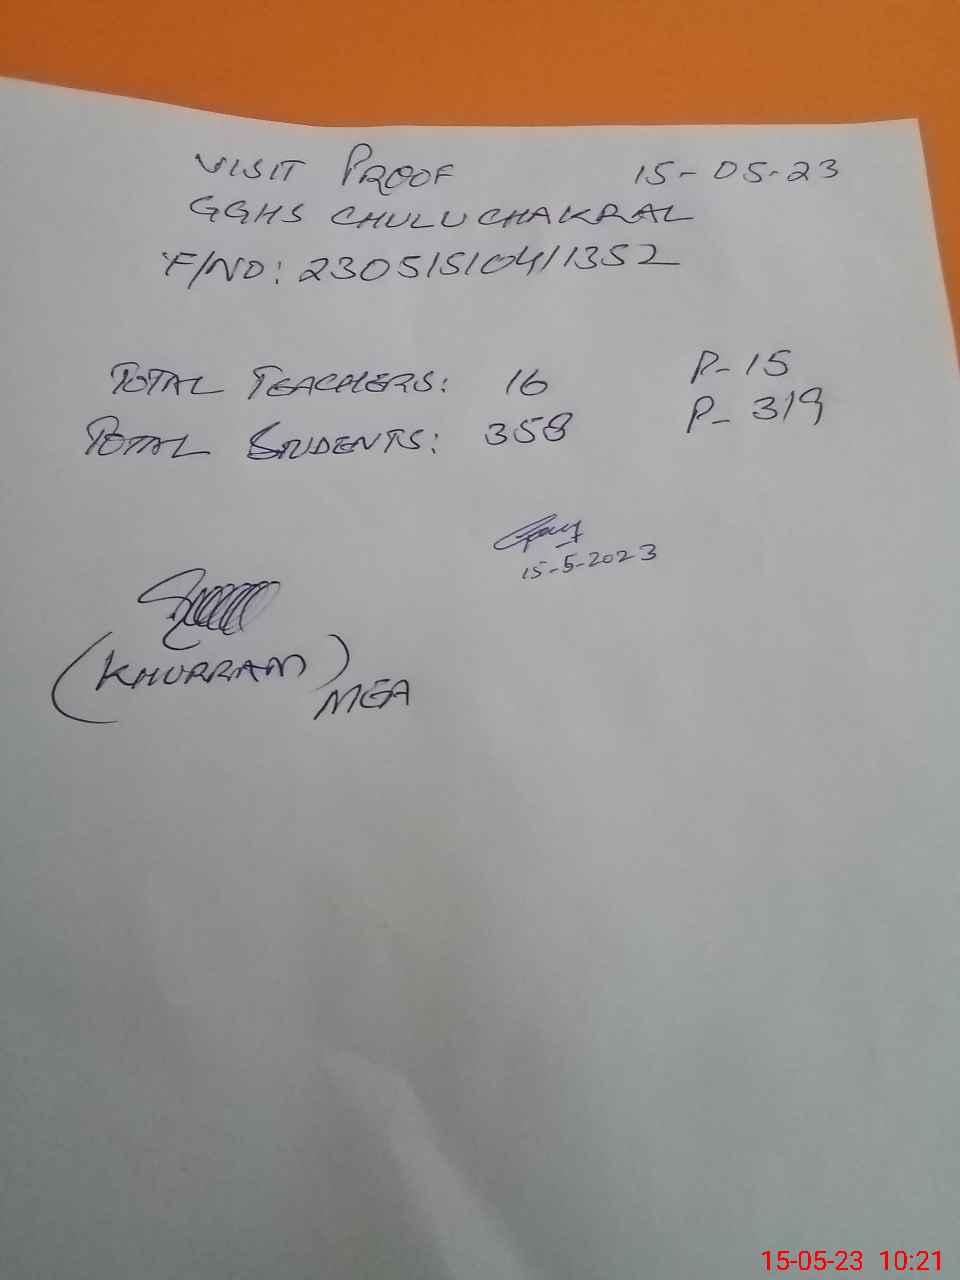 VISIT PROOF 15-05-23
GGHS CHULUCHAKRAL
F/NO: 23051510411352
TOTAL TEACHERS: 16 P-15
TOTAL STUDENTS: 358 P-319
15-5-2023
(KHURRAM)
MEA
15-05-23 10:21